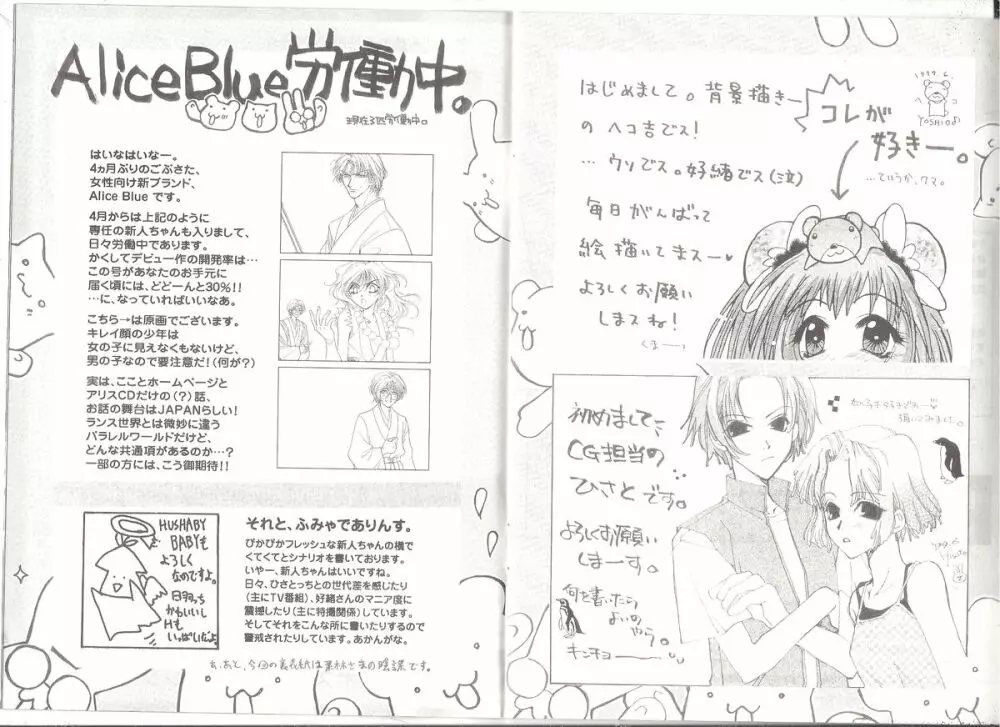 AliceBlue労働中。
現在3匹労働中。
はいなはいなー。
4ヵ月ぶりのごぶさた、
女性向け新ブランド、
Alice Blue です。
4月からは上記のように
専任の新人ちゃんも入りまして、
日々労働中であります。
かくしてデビュー作の開発率は…
この号があなたのお手元に
届く頃には、どどーんと30%!!
…に、なっていればいいなあ。
こちら→は原画でございます。
キレイ顔の少年は
女の子に見えなくもないけど、
男の子なので要注意だ!(何が?)
実は、こことホームページと
アリスCDだけの(?)話、
お話の舞台はJAPANらしい!
ランス世界とは微妙に違う
パラレルワールドだけど、
どんな共通項があるのか…?
一部の方には、こう御期待!!
HUSHABY
BABYも
よろしく
なのですよ。
日羽っち
かわいいし
Hも
いっぱいだよ。
それと、ふみゃでありんす。
ぴかぴかフレッシュな新人ちゃんの横で
くてくてとシナリオを書いております。
いやー、新人ちゃんはいいですね。
日々、ひさとっちとの世代差を感じたり
(主にTV番組)、好緒さんのマニア度に
震撼したり(主に特撮関係)しています。
そしてそれをこんな所に書いたりするので
警戒されたりしています。あかんがな。
あ、あと、今回の裏表紙は栗林さまの陰謀です。
はじめまして。背景描きー
の ヘコ吉でス!
…ウソでス。好緒でス(泣)
毎日がんばって
絵描いてまスー♥
よろしくお願い
しまスね!
くまーっ
コレが
好きー。
…ていうか、クマ。
1999.6.
ヘコ
YOSHIO
初めまして、
CG担当の
ひさとです。
よろしくお願い
しまーす。
何を書いたら
よいの
やら。
キンチョー